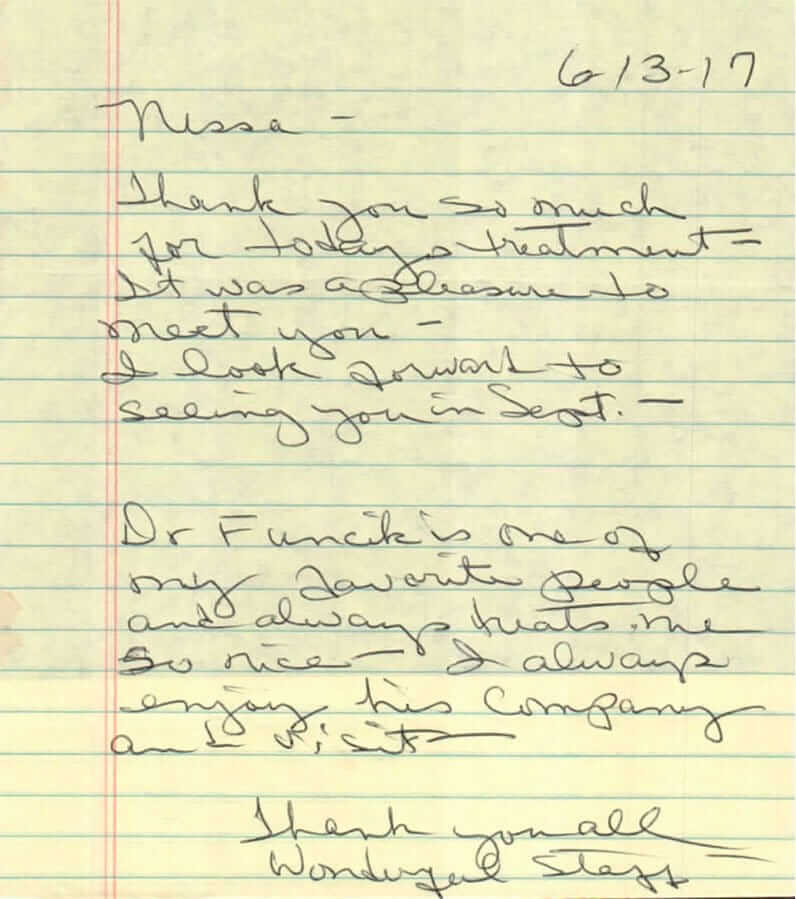 6-13-17
Nissa -
Thank you so much
for todays treatment -
It was a pleasure to
meet you -
I look forward to
seeing you in Sept. -
Dr Funcik is one of
my favorite people
and always treats me
so nice - I always
enjoy his company
and visit -
Thank you all
Wonderful Staff